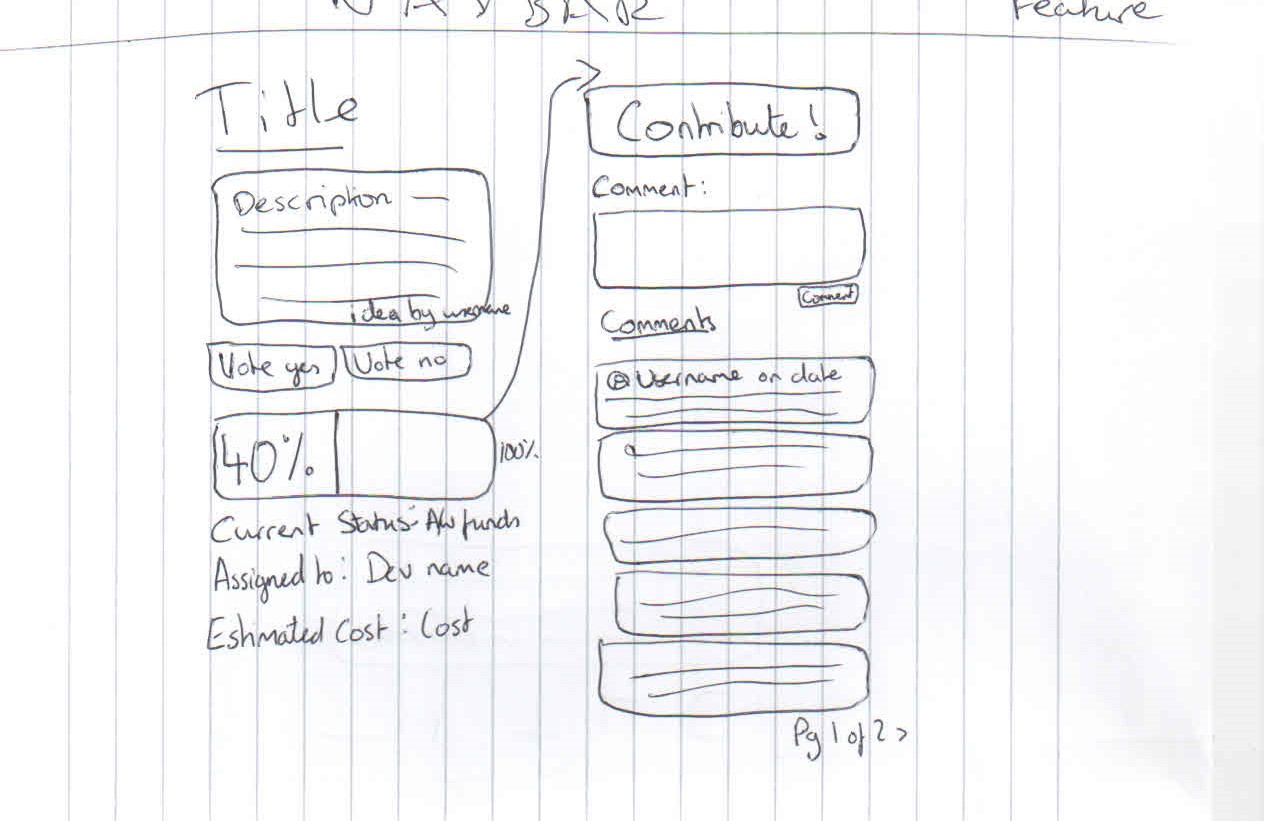 NAVBAR
Feature
Title
Description
idea by username
Vote yes
Vote no
40%
100%
Current Status: Aw funds
Assigned to: Dev name
Estimated Cost: Cost
Contribute!
Comment:
Comment
Comments
Username on date
Pg 1 of 2 >